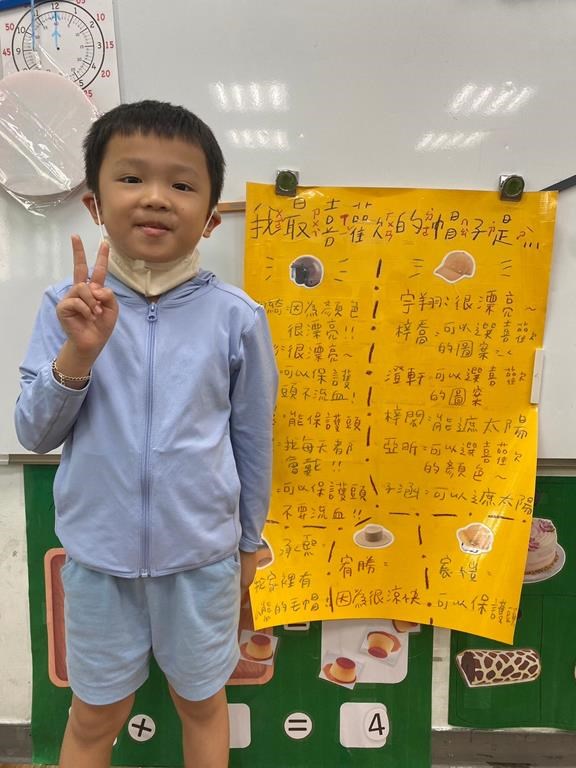 我最喜歡的帽子是
騎:因為顏色
很漂亮!!
:很漂亮~
可以保護
頭不流血!
:能保護頭
:我每天都
會戴!!
:可以保護頭
不要流血!!
宇翔:很漂亮~
梓喬:可以選喜歡
的圖案~
澄軒:可以選喜歡
的圖案
梓閎:能遮太陽
亞昕:可以選喜歡
的顏色~
子涵:可以遮太陽
承熙:
我家裡有
的毛帽!
宥勝:
因為很涼快
可以保護頭
+ = 4